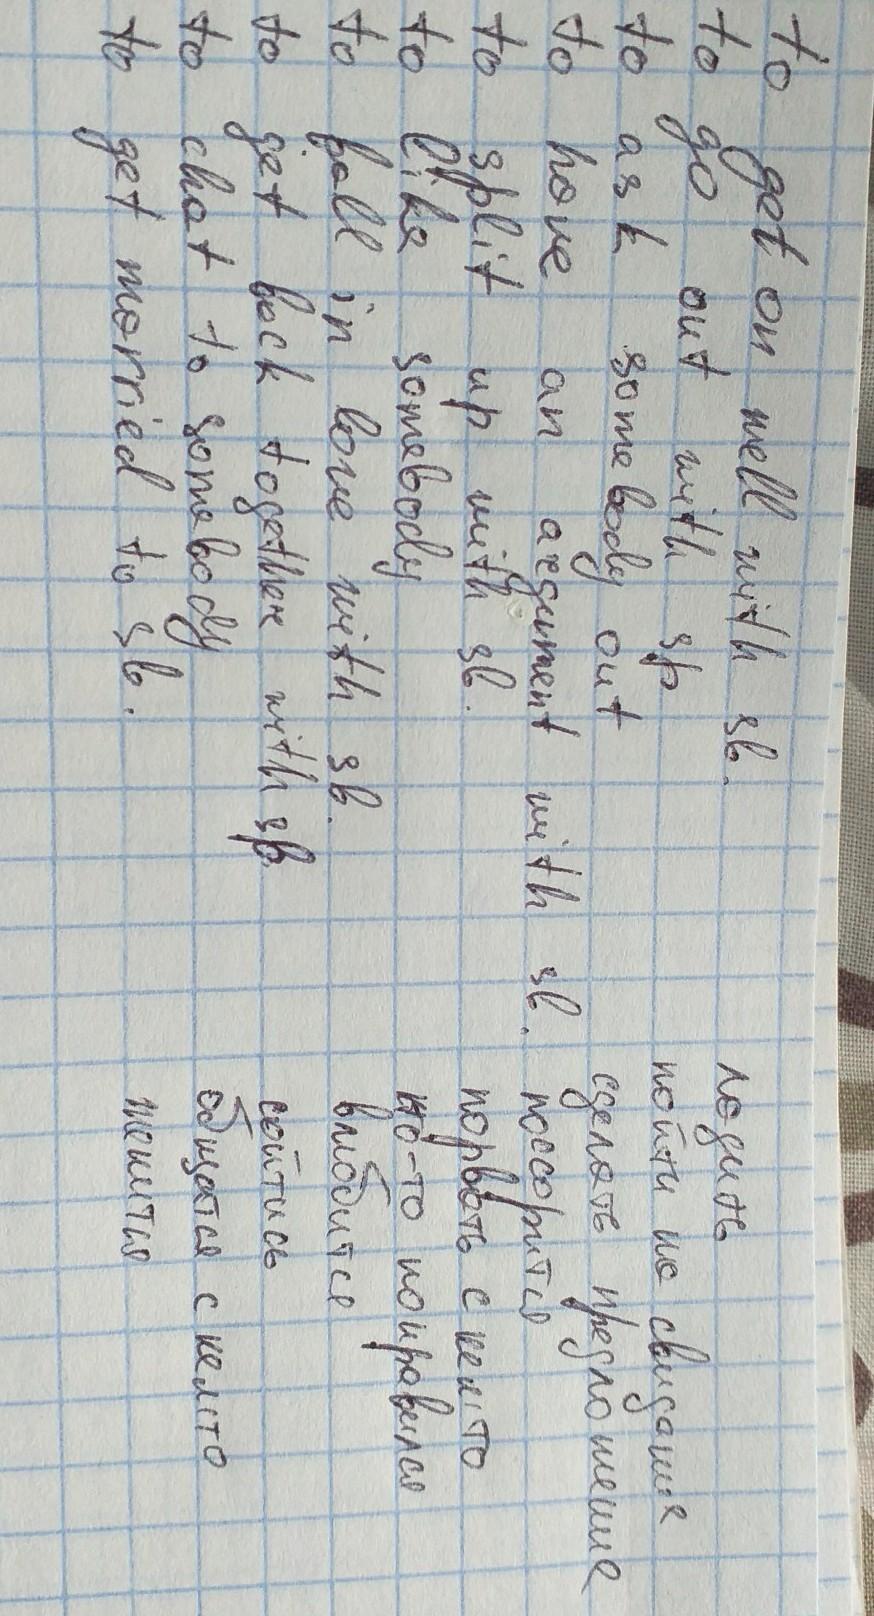 to get on well with sb. ладить
to go out with sb пойти на свидание
to ask somebody out сделать предложение
to have an argument with sb. поссорится
to split up with sb. порвать с кем-то
to like somebody кто-то понравился
to fall in love with sb. влюбится
to get back together with sb. сойтись
to chat to somebody общатся с кем-то
to get married to sb. женится